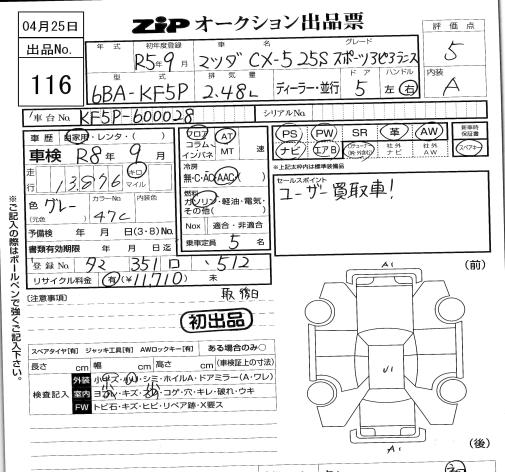 04月25日
ZiP オークション出品票
評価点
出品No. 116
年式 初年度登録 車名 グレード
R5年9月 マツダ CX-5 25S スポーツアピアランス
5
型式 排気量 ディーラー・並行 ドア ハンドル
6BA-KF5P 2.48L 5 左 右
内装
A
車台No. KF5P-600028 シリアルNo.
車歴 自家用・レンタ・( )
車検 R8年9月
走行 13876 キロ マイル
色 グレー カラーNo. 47C 内装色
(元色)
予備検 年 月 日(3・8)No.
書類有効期限 年 月 日
登録No. 92 351 ロ 512
リサイクル料金 有(¥11,710) 未
フロア コラム インパネ AT MT 速
冷房
無・C・AC・AAC
燃料
ガソリン・軽油・電気・その他( )
Nox 適合・非適合
乗車定員 5 名
PS PW SR 革 AW
ナビ エアB 社外ナビ 社外AW
新車時保証書
スペアキー
*上記太枠内は標準装備品
セールスポイント
ユーザー買取車!
※ご記入の際はボールペンで強くご記入下さい。
〔注意事項〕
取後日
初出品
スペアタイヤ[有] ジャッキ工具[有] AWロックキー[有] ある場合のみ○
長さ cm 幅 cm 高さ cm (車検証上の寸法)
検査記入
外装 小キズ・ ・シミ・ホイルA・ドアミラー(A・ワレ)
室内 ヨゴレ・キズ・ ・コゲ・穴・キレ・破れ・ウキ
FW トビ石・キズ・ヒビ・リペア跡・X要ス
A1
(前)
U1
A1
(後)